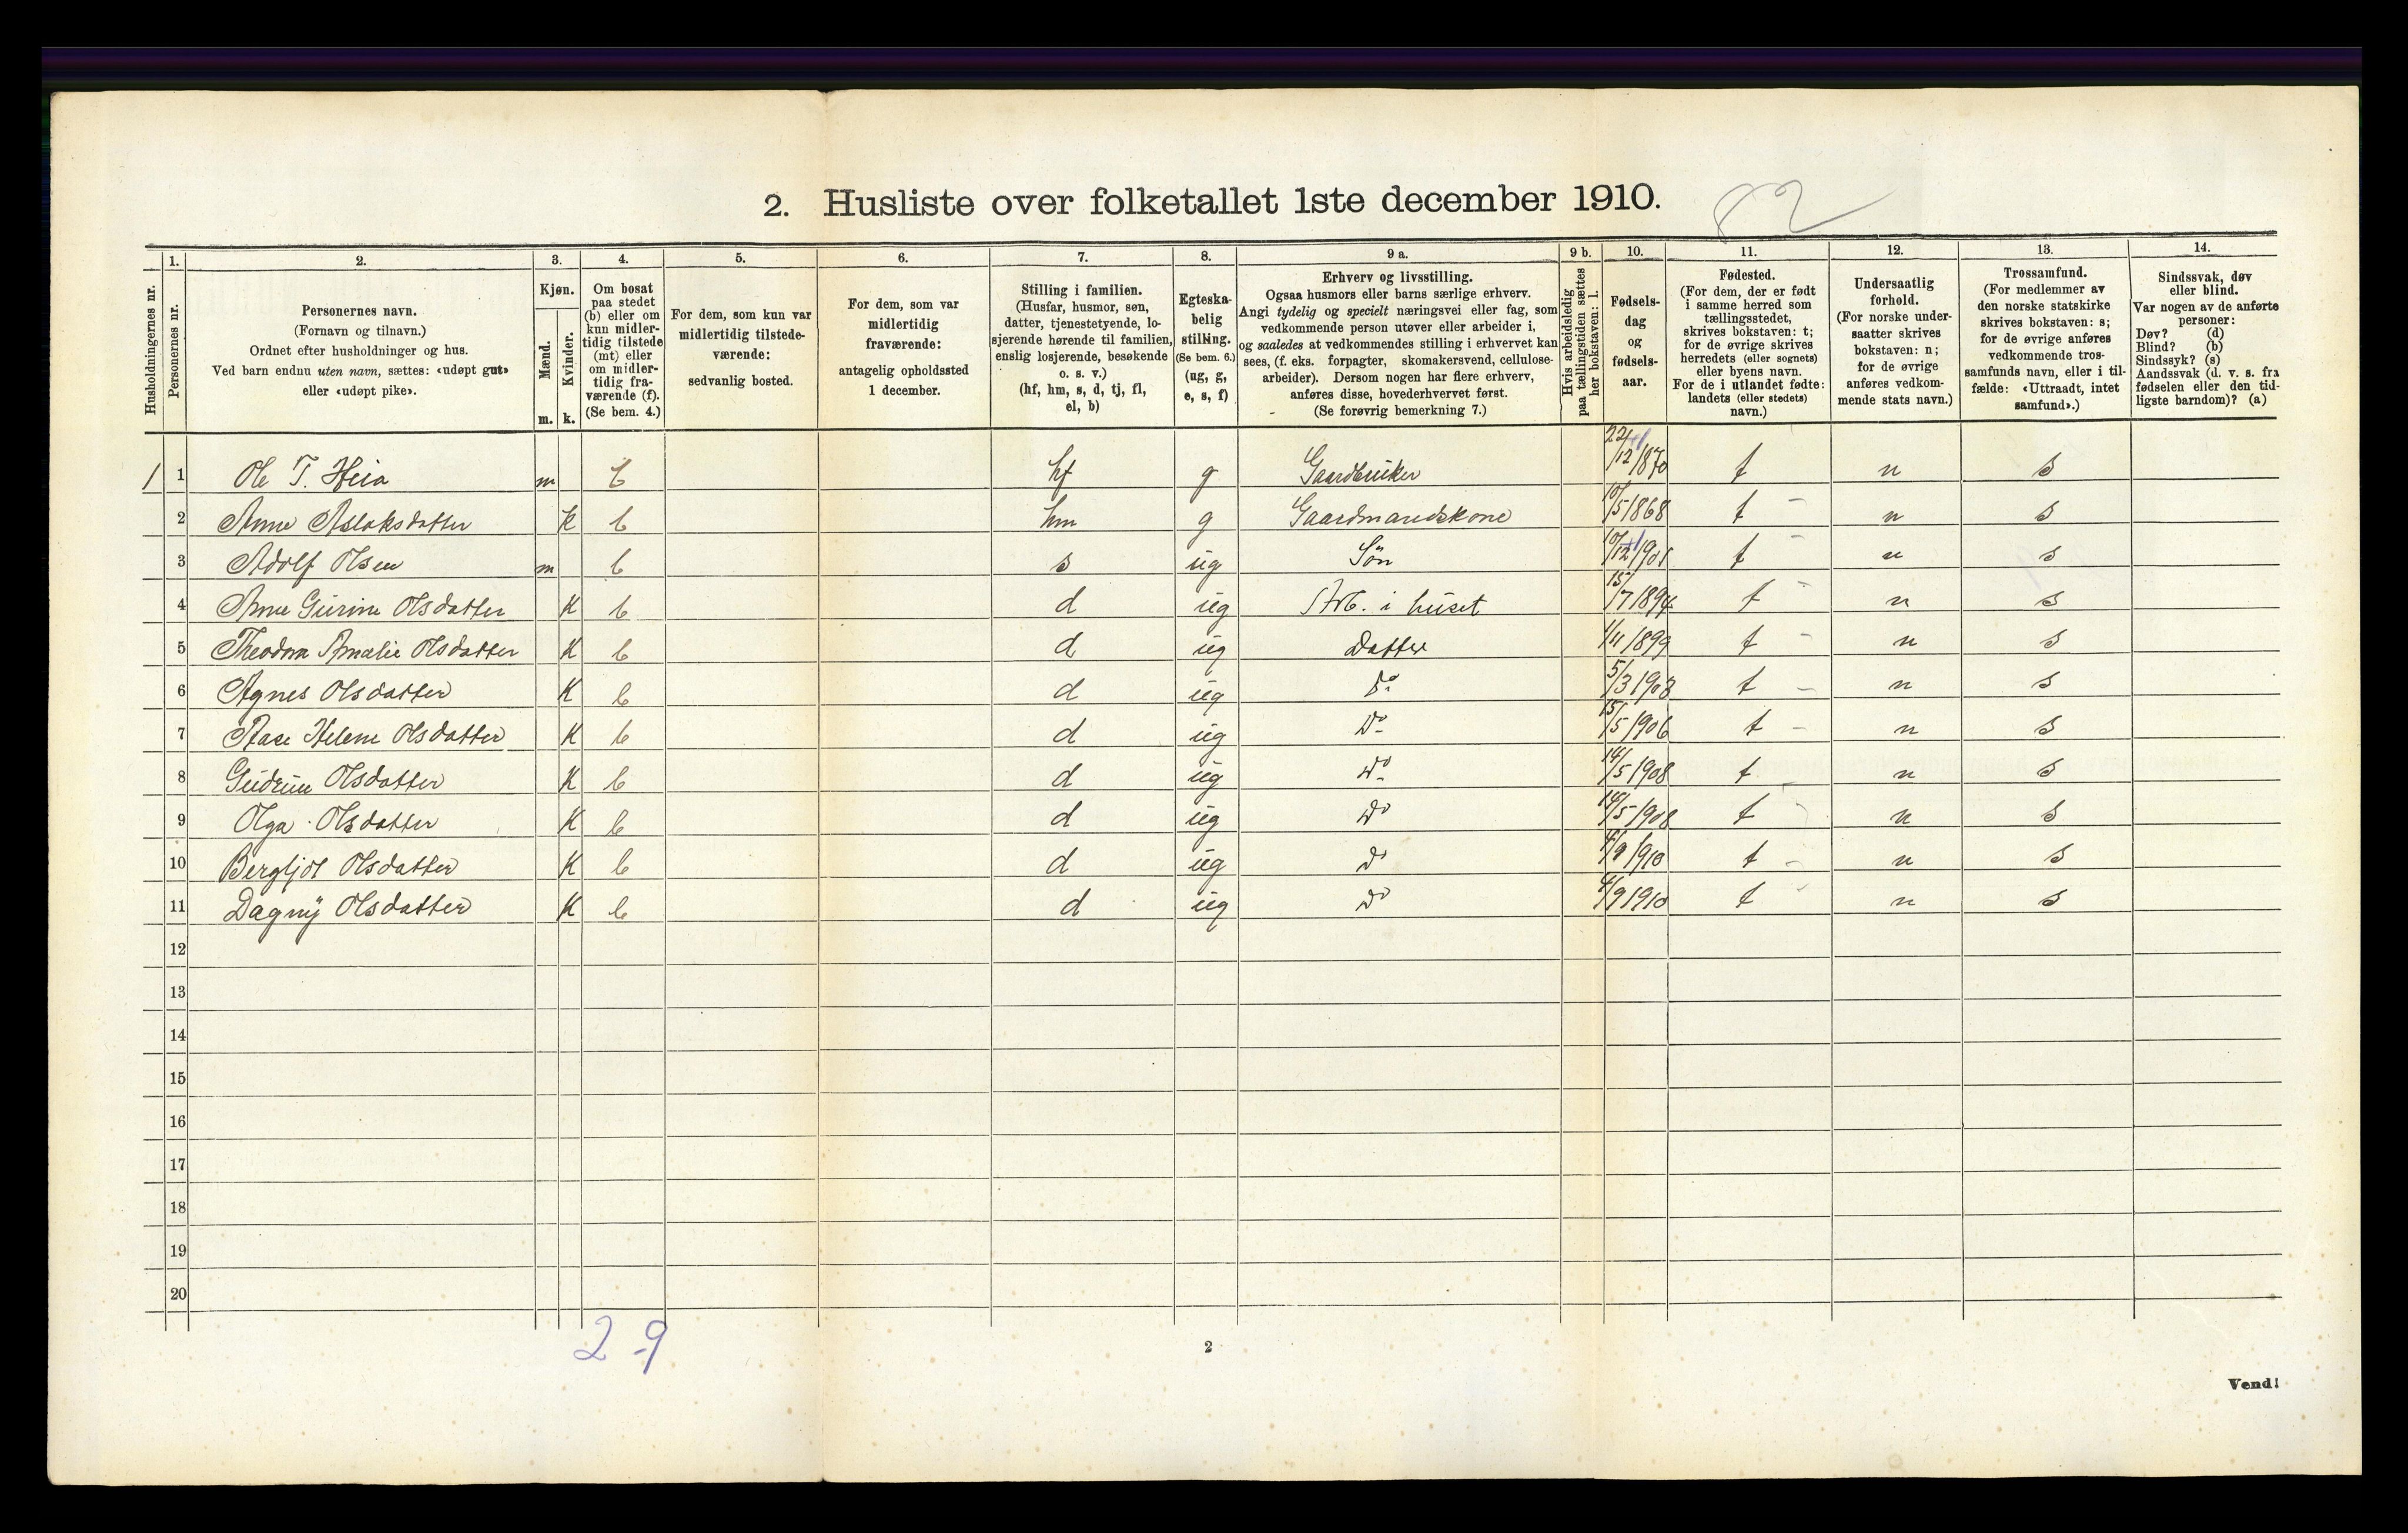 82
2. Husliste over folketallet 1ste december 1910.
Husholdningernes nr.
1.
Personernes nr.
2.
Personernes navn.
(Fornavn og tilnavn.)
Ordnet efter husholdninger og hus.
Ved barn endnu uten navn, sættes: «udøpt gut»
eller «udøpt pike».
3.
Kjøn.
Mænd.
m.
Kvinder.
k.
4.
Om bosat
paa stedet
(b) eller om
kun midler-
tidig tilstede
(mt) eller
om midler-
tidig fra-
værende (f).
(Se bem. 4.)
5.
For dem, som kun var
midlertidig tilstede-
værende:
sedvanlig bosted.
6.
For dem, som var
midlertidig
fraværende:
antagelig opholdssted
1 december.
7.
Stilling i familien.
(Husfar, husmor, søn,
datter, tjenestetyende, lo-
sjerende hørende til familien,
enslig losjerende, besøkende
o. s. v.)
(hf, hm, s, d, tj, fl,
el, b)
8.
Egteska-
belig
stilling.
(Se bem. 6.)
(ug, g,
e, s, f)
9 a.
Erhverv og livsstilling.
Ogsaa husmors eller barns særlige erhverv.
Angi tydelig og specielt næringsvei eller fag, som
vedkommende person utøver eller arbeider i,
og saaledes at vedkommendes stilling i erhvervet kan
sees, (f. eks. forpagter, skomakersvend, cellulose-
arbeider). Dersom nogen har flere erhverv,
anføres disse, hovederhvervet først.
(Se forøvrig bemerkning 7.)
9 b.
Hvis arbeidsledig
paa tællingstiden sættes
her bokstaven: l.
10.
Fødsels-
dag
og
fødsels-
aar.
11.
Fødested.
(For dem, der er født
i samme herred som
tællingsstedet,
skrives bokstaven: t;
for de øvrige skrives
herredets (eller sognets)
eller byens navn.
For de i utlandet fødte:
landets (eller stedets)
navn.)
12.
Undersaatlig
forhold.
(For norske under-
saatter skrives
bokstaven: n;
for de øvrige
anføres vedkom-
mende stats navn.)
13.
Trossamfund.
(For medlemmer av
den norske statskirke
skrives bokstaven: s;
for de øvrige anføres
vedkommende tros-
samfunds navn, eller i til-
fælde: «Uttraadt, intet
samfund».)
14.
Sindssvak, døv
eller blind.
Var nogen av de anførte
personer:
Døv? (d)
Blind? (b)
Sindssyk? (s)
Aandssvak (d. v. s. fra
fødselen eller den tid-
ligste barndom)? (a)
1 1 Ole T. Heia m b hf g Gaardbruker 22/12/1870 t n s
2 Anne Aslaksdatter k b hm g Gaardmandskone 10/5 1868 t n s
3 Adolf Olsen m b s ug Sön 10/12 1901 t n s
4 Anne Gurine Olsdatter K b d ug Arb. i huset 15/7 1894 t n s
5 Theodora Amalie Olsdatter K b d ug Datter 1/11 1899 t n s
6 Agnes Olsdatter K b d ug Do 5/3 1903 t n s
7 Aase Helene Olsdatter K b d ug Do 15/5 1906 t n s
8 Gudrun Olsdatter K b d ug Do 14/5 1908 t n s
9 Olga Olsdatter K b d ug Do 14/5 1908 t n s
10 Bergljot Olsdatter K b d ug Do 4/9 1910 t n s
11 Dagny Olsdatter K b d ug Do 4/9 1910 t n s
12
13
14
15
16
17
18
19
20
2 - 9
2
Vend!